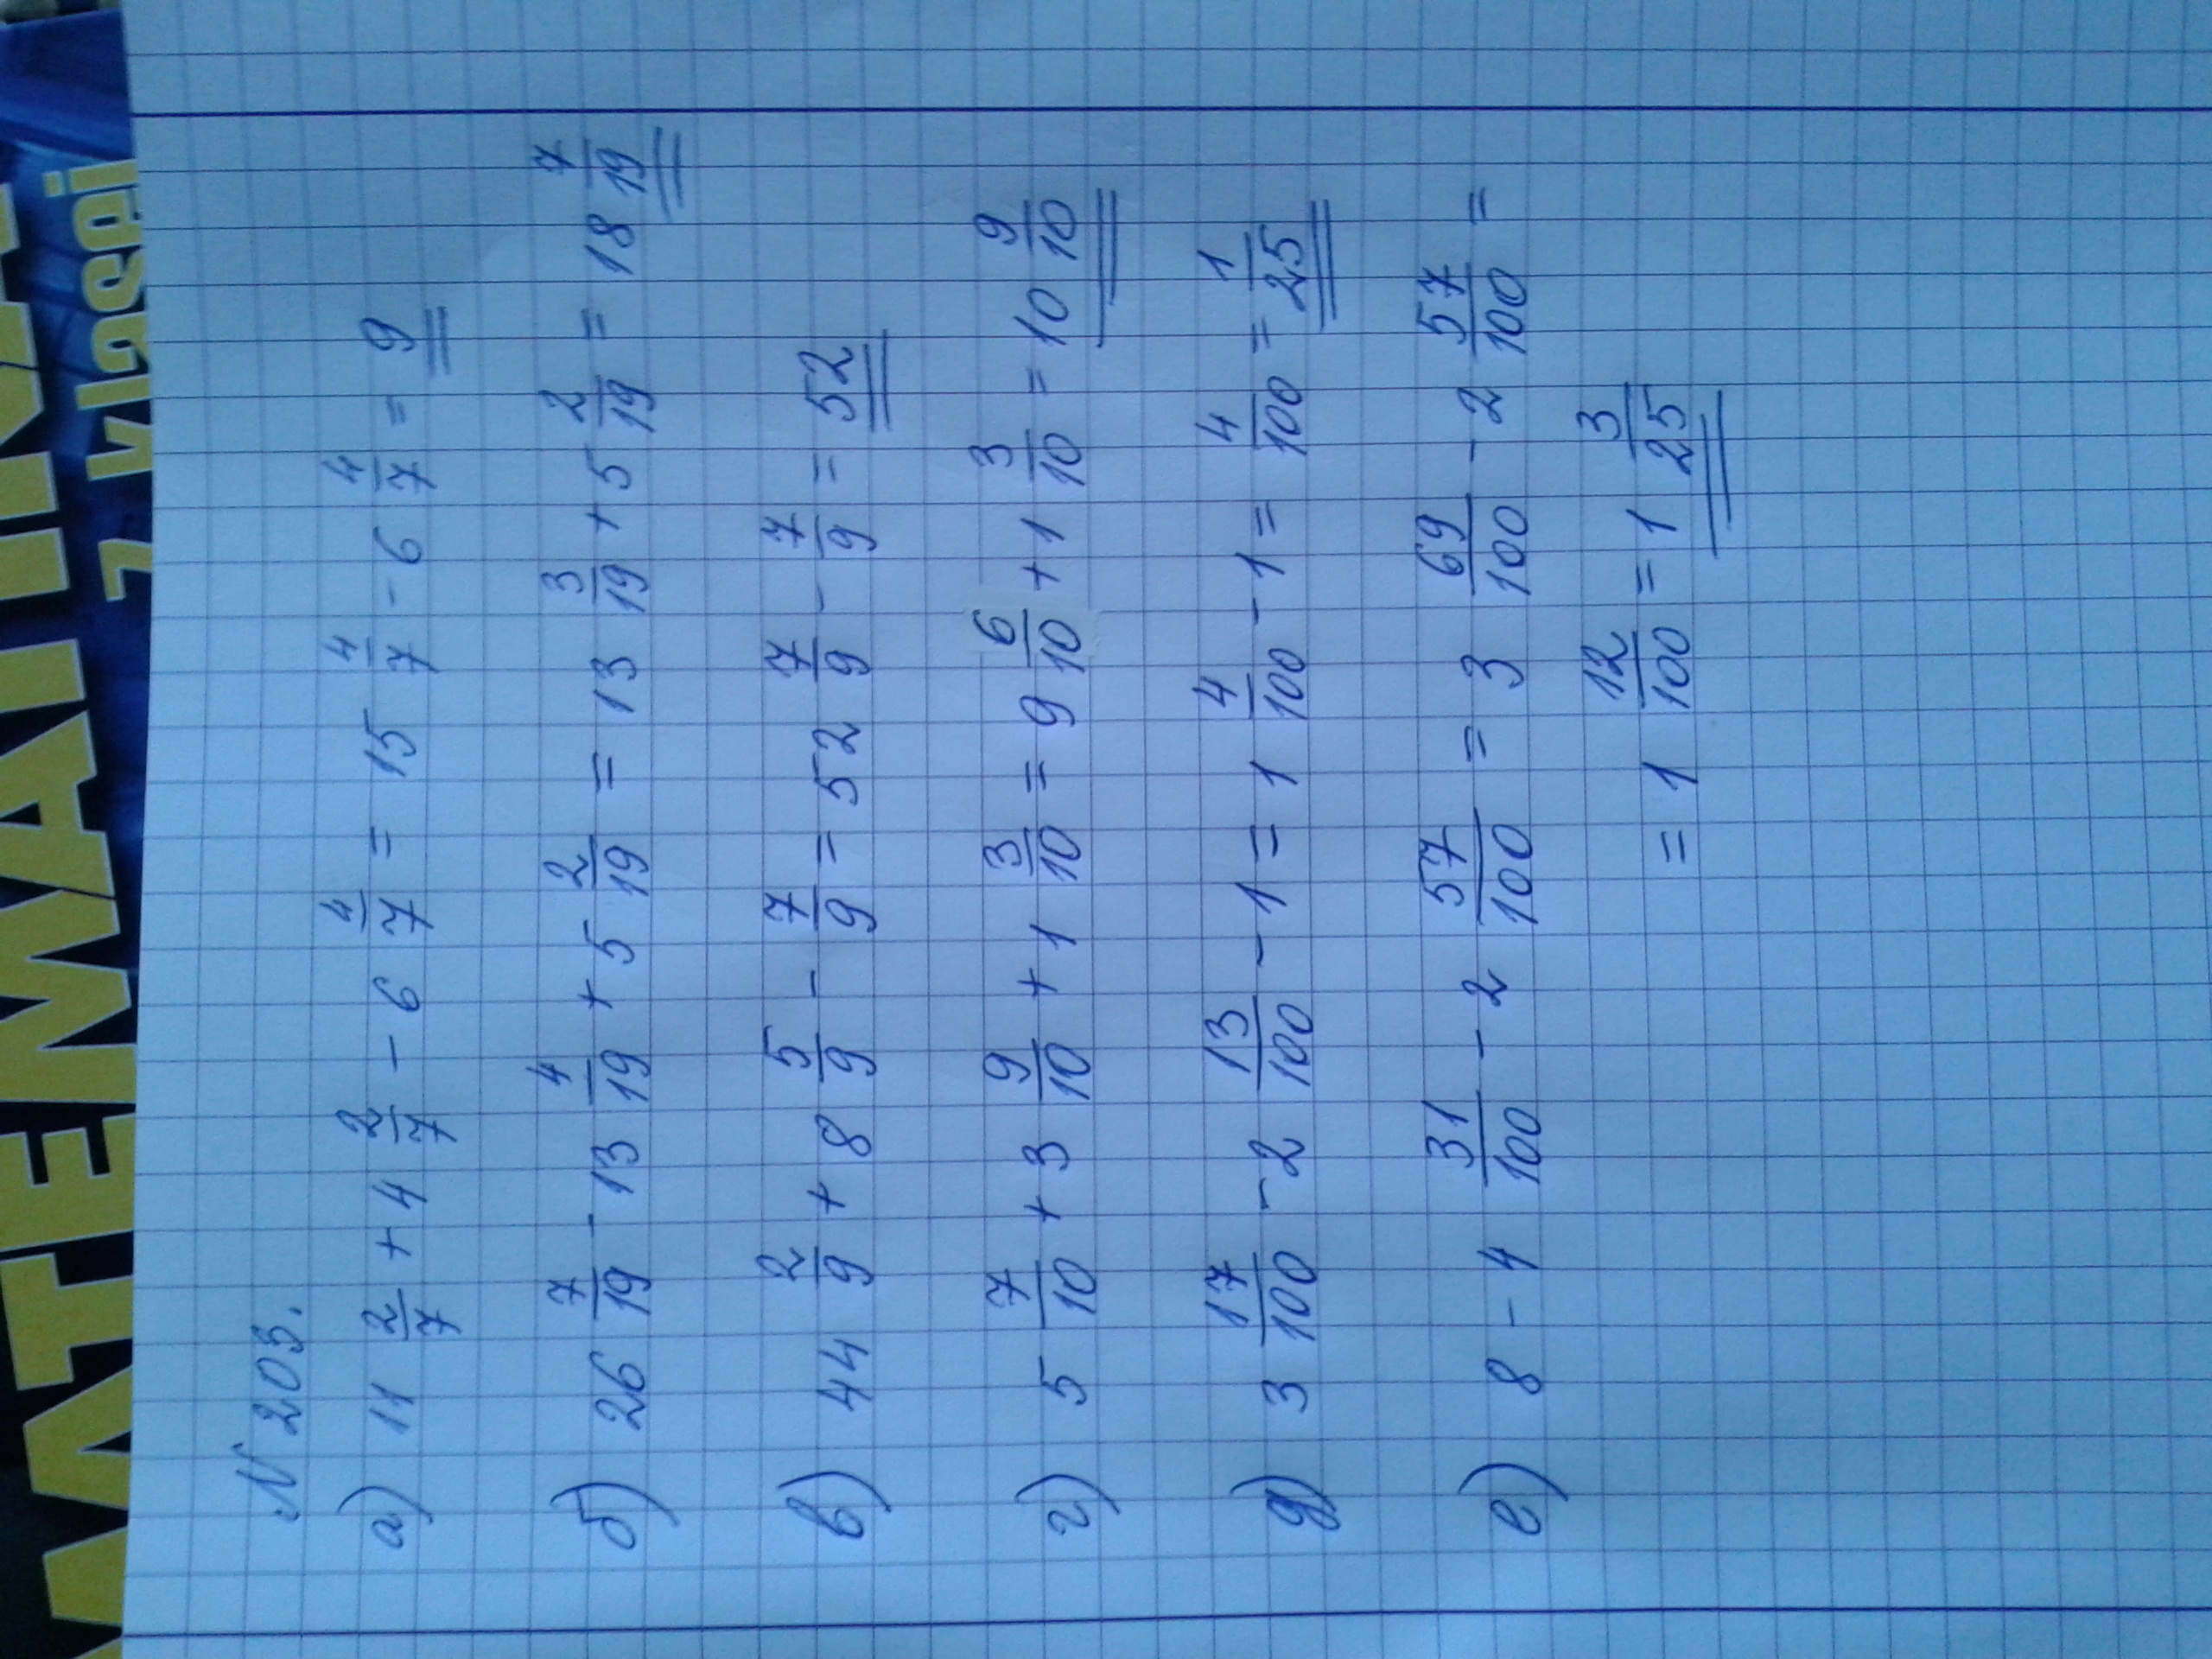 N 205.
а) 11 2/7 + 4 2/7 - 6 4/7 = 15 4/7 - 6 4/7 = 9
б) 26 7/19 - 13 4/19 + 5 2/19 = 13 3/19 + 5 2/19 = 18 7/19
в) 44 2/9 + 8 5/9 - 7/9 = 52 7/9 - 7/9 = 52
г) 5 7/10 + 3 9/10 + 1 3/10 = 9 6/10 + 1 3/10 = 10 9/10
д) 3 17/100 - 2 13/100 - 1 = 1 4/100 - 1 = 4/100 = 1/25
е) 8 - 4 31/100 - 2 57/100 = 3 69/100 - 2 57/100 =
= 1 12/100 = 1 3/25